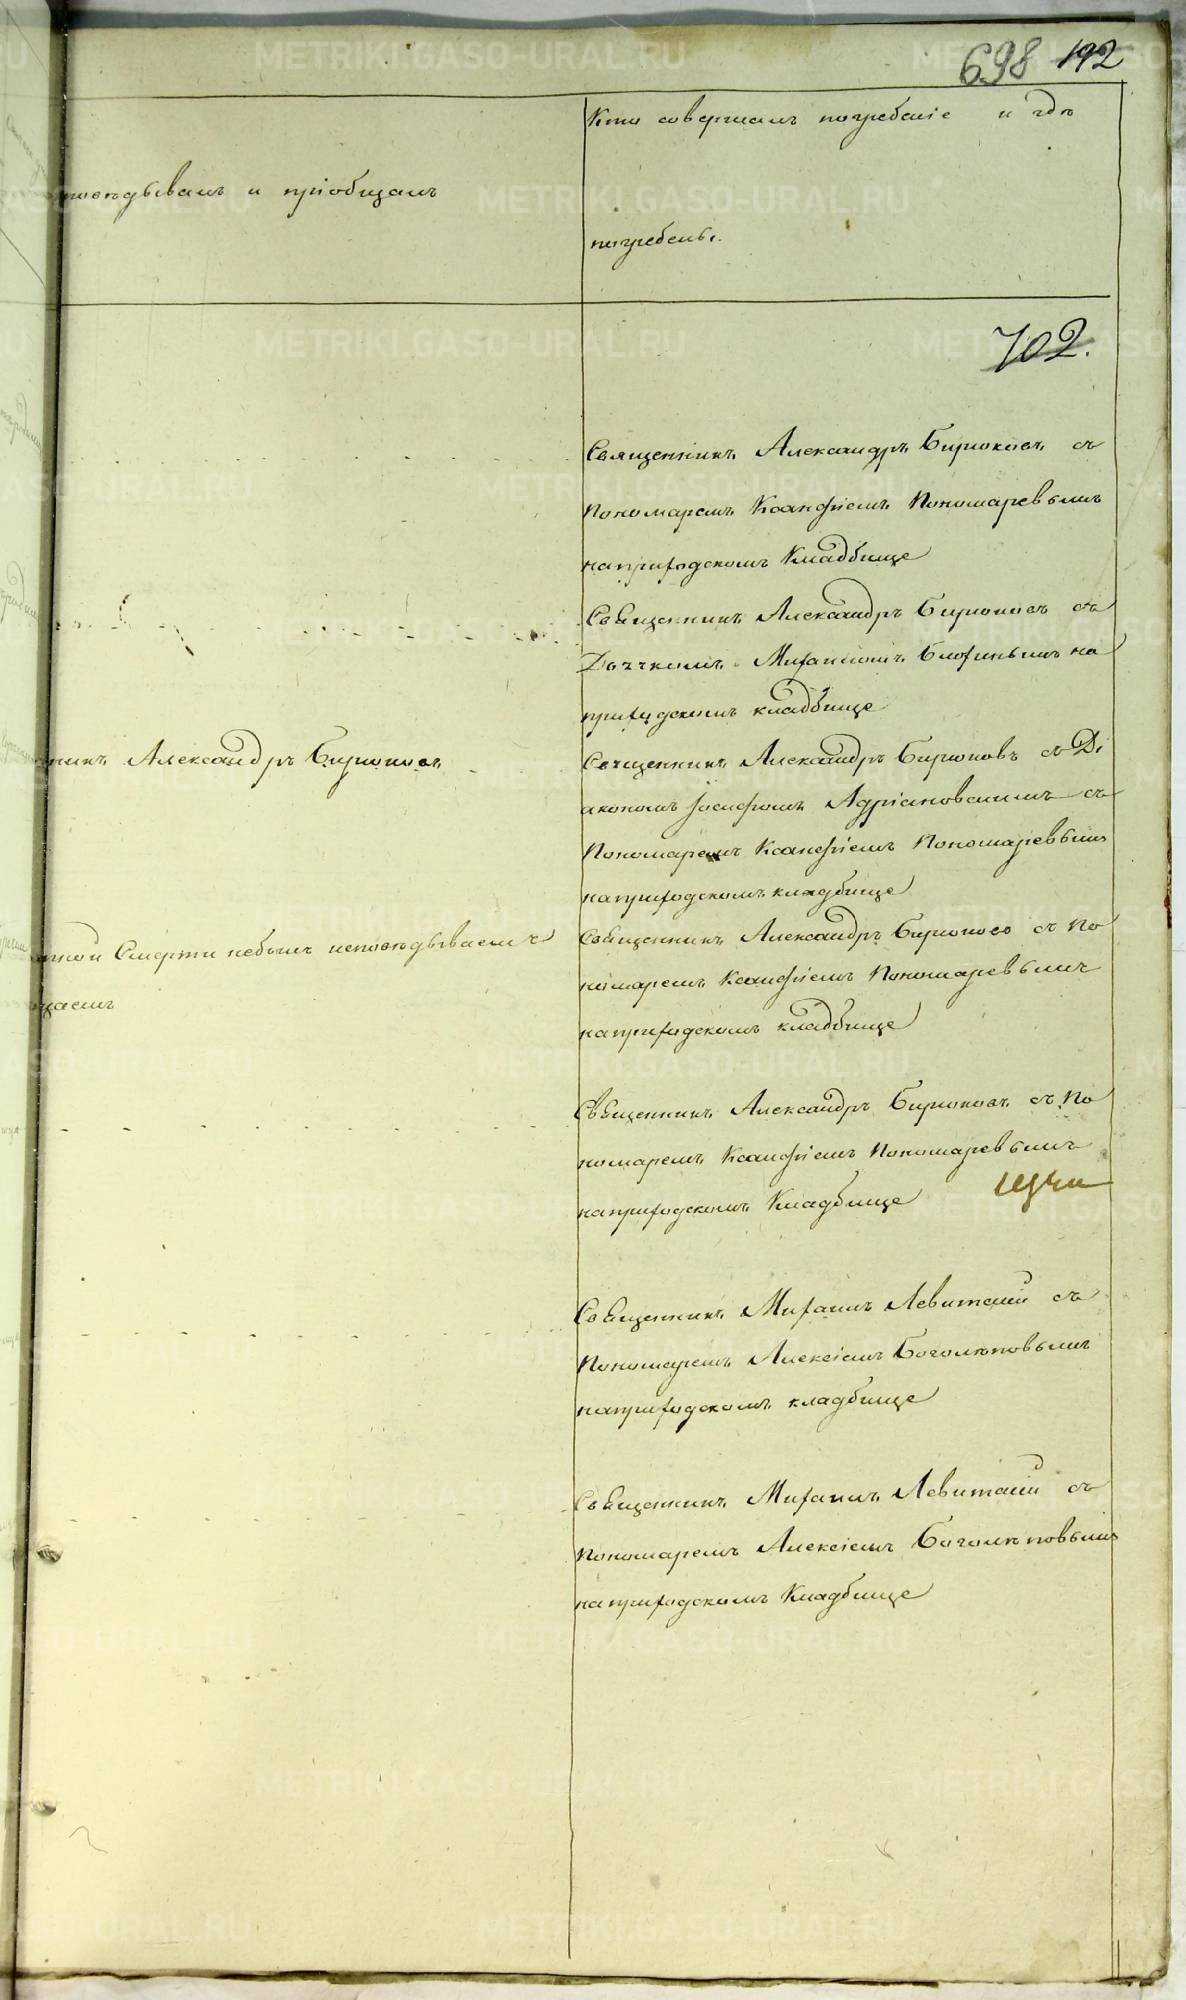 698 192
Кто совершалъ погребенiе и гдѣ
повѣдывалъ и прiобщалъ
погребены.
702.
Священникъ Александръ Бирюковъ съ
Пономаремъ Ксанфiемъ Пономаревымъ
наприходскомъ Кладбище
Священникъ Александръ Бирюковъ съ
Дьячкомъ Михаиломъ на
приходскомъ кладбище
никъ Александръ Бирюковъ
Священникъ Александръ Бирюковъ съ Дi
акономъ Iосифомъ Адрiановскимъ съ
Пономаремъ Ксанфiемъ Пономаревымъ
наприходскомъ кладбище
Смерти небылъ исповѣдываемъ
щаемъ
Священникъ Александръ Бирюковъ съ По
номаремъ Ксанфiемъ Пономаревымъ
наприходскомъ кладбище
Священникъ Александръ Бирюковъ съ По
номаремъ Ксанфiемъ Пономаревымъ
наприходскомъ Кладбище
Священникъ Михаилъ Левитскiй съ
Пономаремъ Алексiемъ Боголюповымъ
наприходскомъ кладбище
Священникъ Михаилъ Левитскiй съ
Пономаремъ Алексiемъ Боголюповымъ
наприходскомъ Кладбище
METRIKI.GASO-URAL.RU